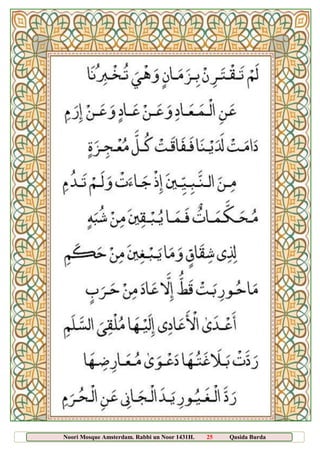 لَمْ تَـقْـتَـرِنْ بِـزَمَـانٍ وَهْيَ تُـخْبِرُنَا
عَنِ الْـمَـعَـادِ وَعَـنْ عَـادٍ وَعَـنْ إِرَمِ
دَامَـتْ لَدَيْـنَـا فَـفَـاقَـتْ كُـلَّ مُعْـجِـزَةٍ
مِـنَ الـنَّـبِـيِّـينَ إِذْ جَـاءَتْ وَلَـمْ تَـدُمِ
مُـحَـكَّـمَـاتٌ فَـمَـا يُـبْـقِـينَ مِنْ شُبَهٍ
لِذِي شِقَاقٍ وَمَا يَـبْـغِـينَ مِنْ حَكَمِ
مَا حُـورِبَـتْ قَطُّ إِلَّا عَادَ مِنْ حَـرَبٍ
أَعْـدَى الْأَعَادِي إِلَيْـهَـا مُلْقِيَ السَّلَمِ
رَدَّتْ بَـلَاغَـتُـهَـا دَعْـوَى مُـعَـارِضِـهَـا
رَدَّ الْـغَـيُـورِ يَـدَ الْـجَـانِي عَنِ الْـحُـرَمِ
Noori Mosque Amsterdam. Rabbi un Noor 1431H. 25 Qasida Burda